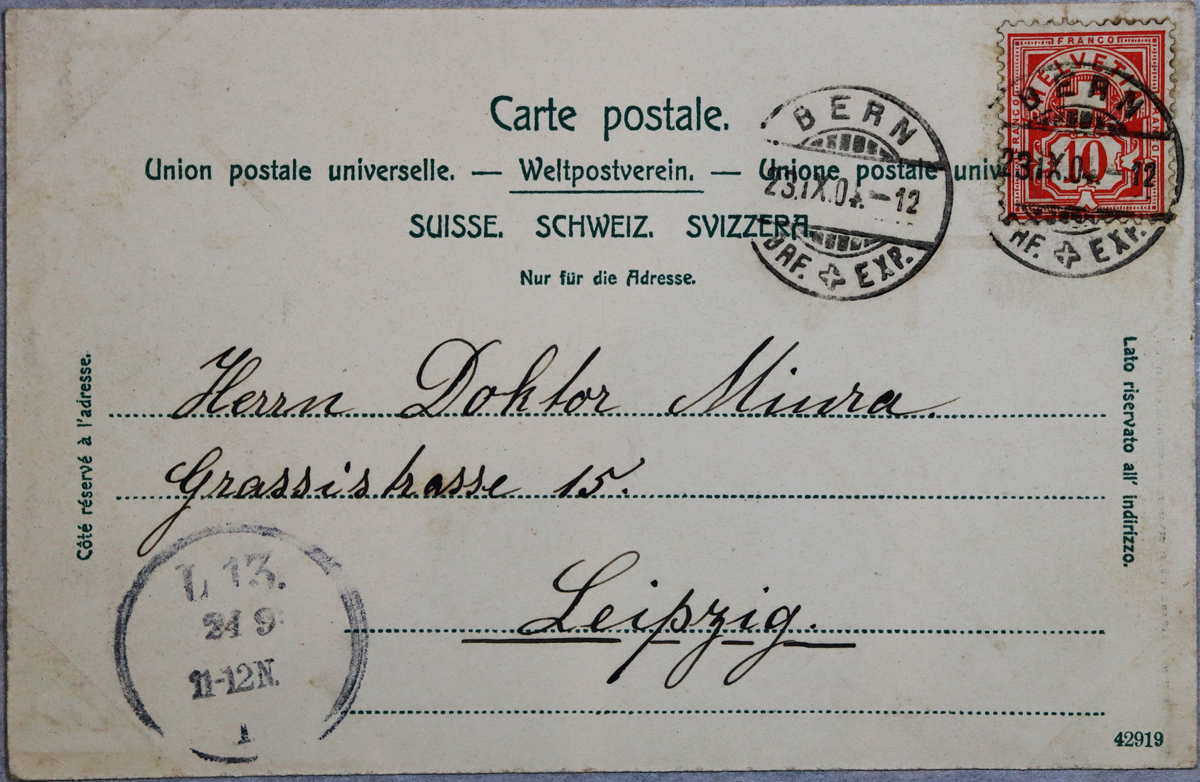 Carte postale.
Union postale universelle. — Weltpostverein. — Unione postale univ
SUISSE. SCHWEIZ. SVIZZERA.
Nur für die Adresse.
FRANCO
HELVETIA
FRANCO
FRANCO
10
BERN
23.IX.04.–12
BRF. EXP.
BERN
23.IX.04.–12
BRF. EXP.
Côté réservé à l'adresse.
Lato riservato all' indirizzo.
Herrn Doktor Miura.
Grassistrasse 15.
Leipzig.
L 13.
24 9
11-12N.
1
42919